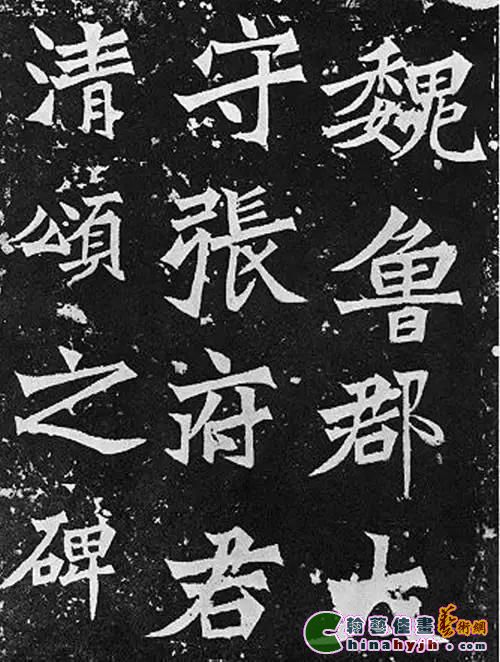 魏魯郡太
守張府君
清頌之碑
翰藝佳畫藝術網
Chinahyjh.com